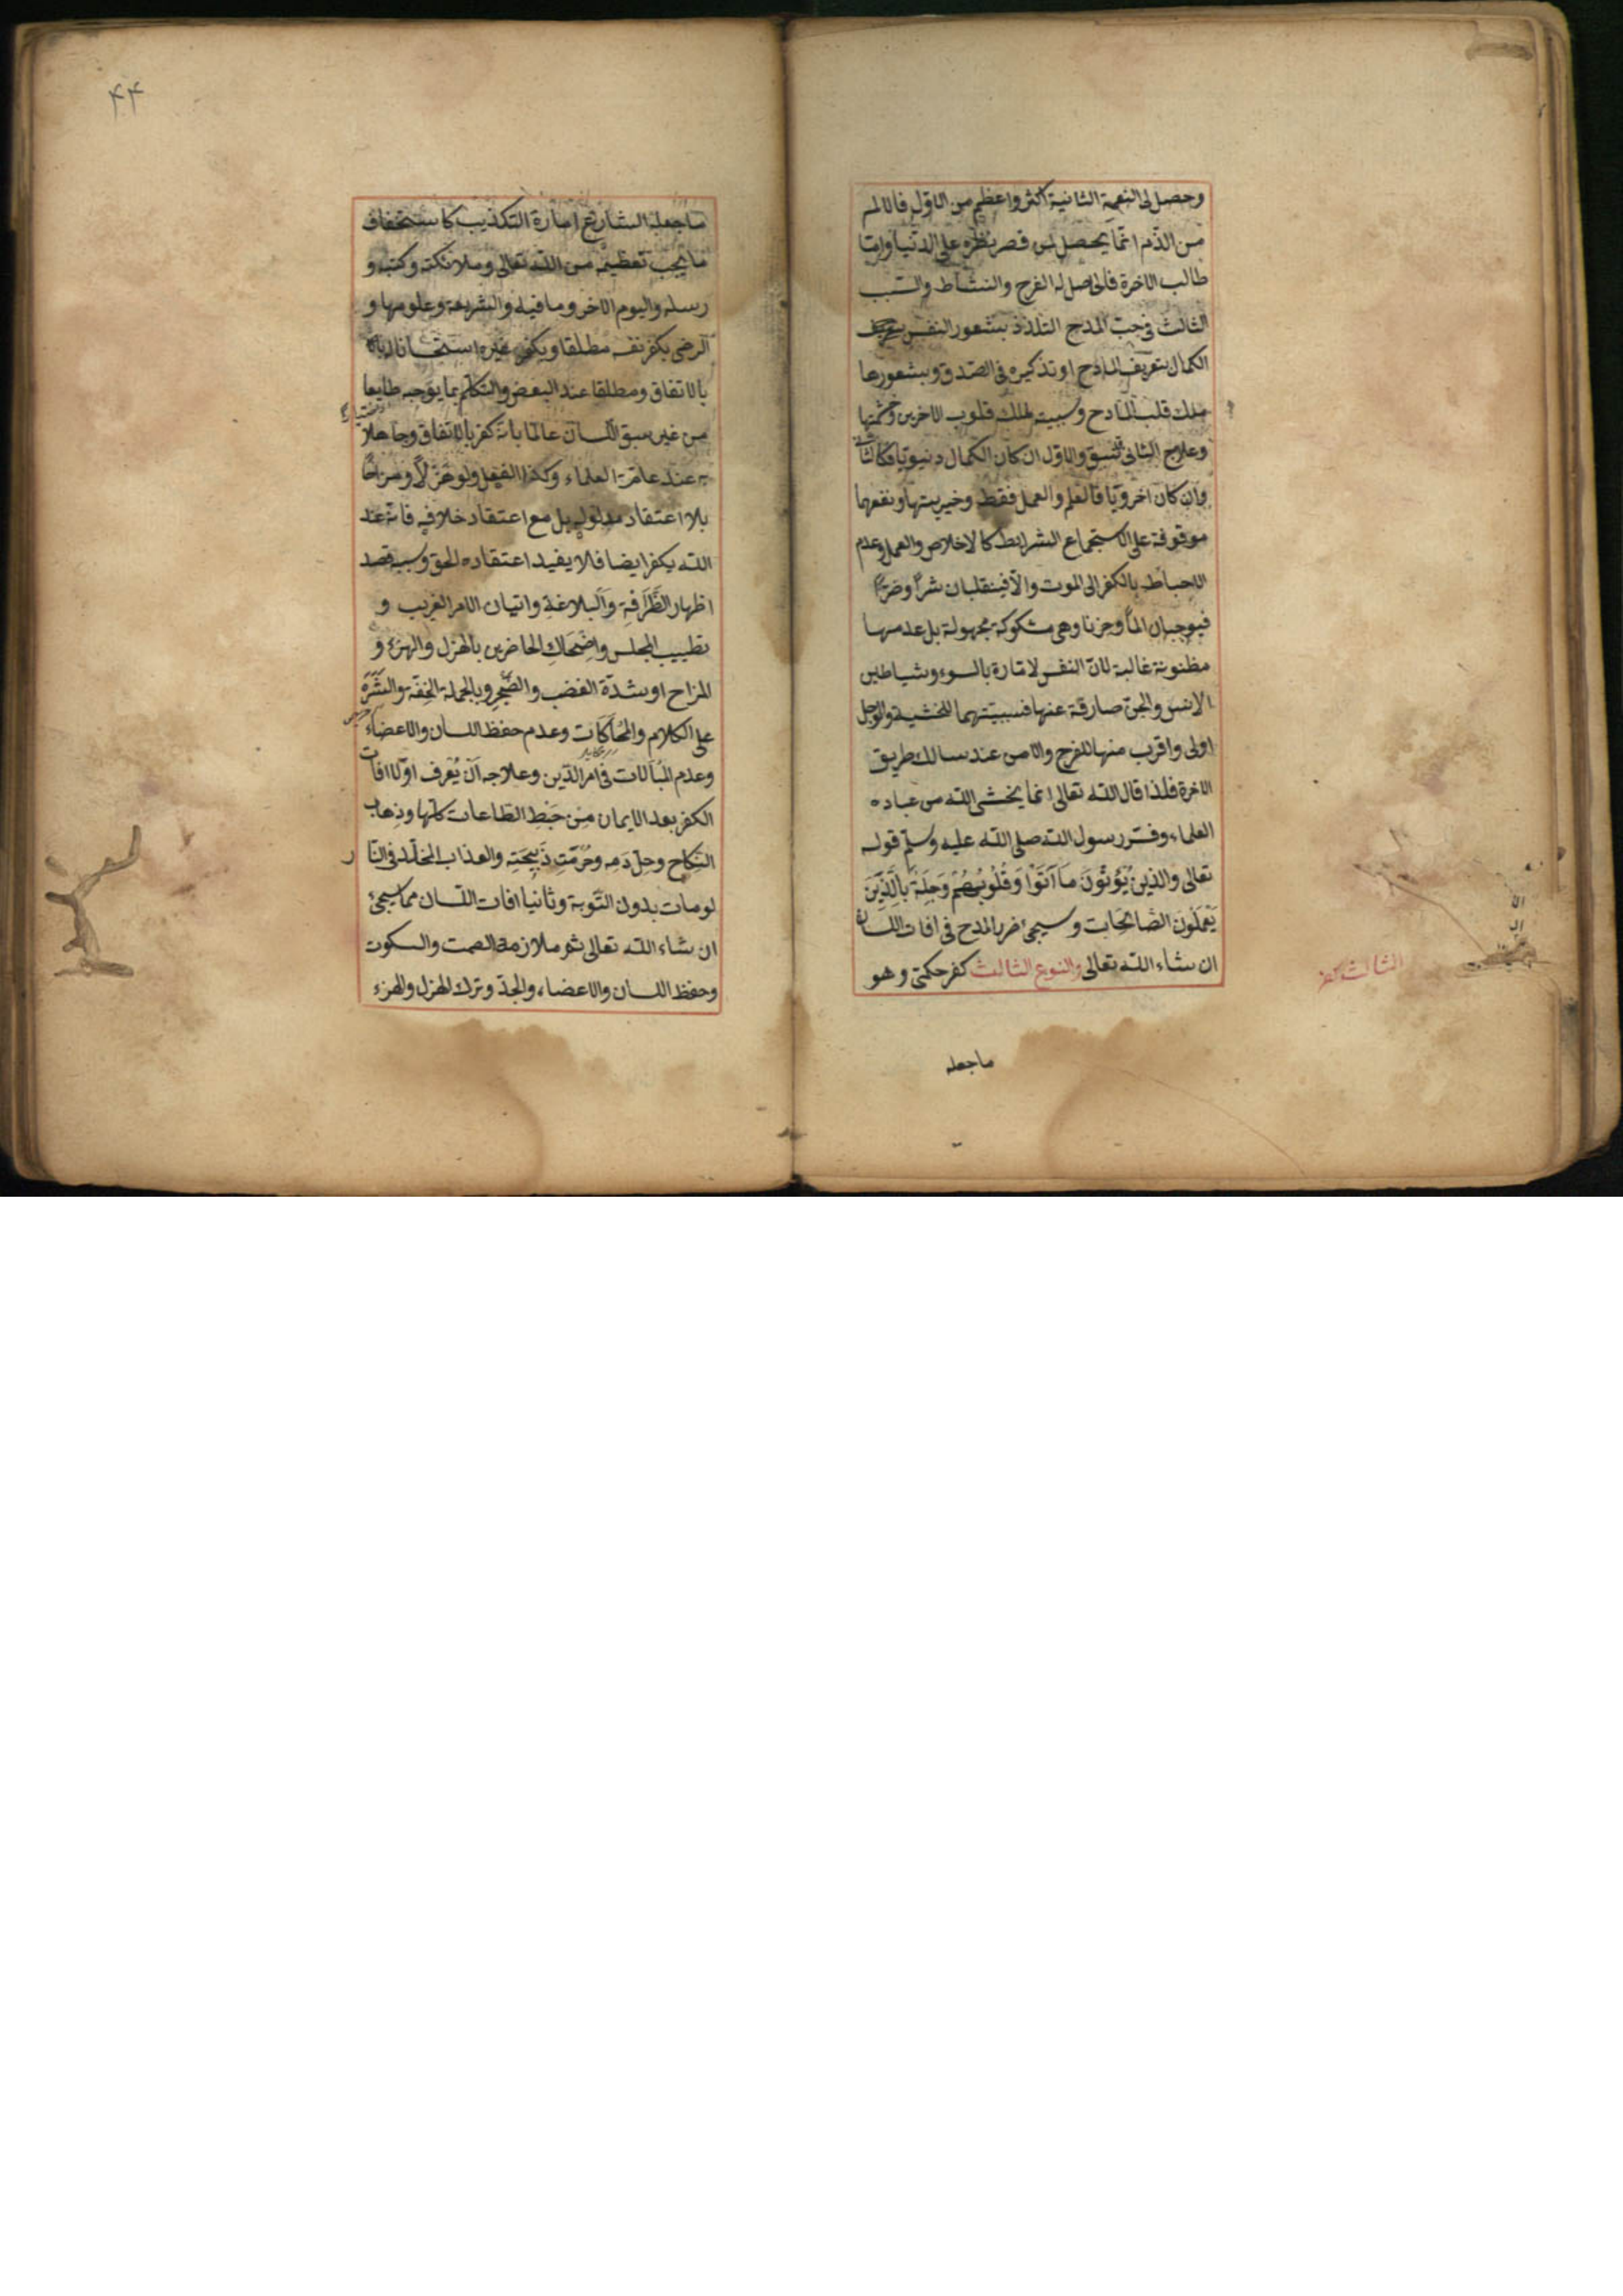 وحصل لى النعمة الثانية اكثر واعظم من الاوّل فالالم
من الذّم انّما يحصل لمن قصر نظره على الدّنيا وامّا
طالب الاخرة فالحاصل له الفرح والنشاط والسّبب
الثالث فى حبّ المدح التلذذ بشعور النفس
الكمال بتعريف المادح او تذكيره فى الصّدق وبشعورها
ملك قلب المادح وسببيته لملك قلوب الاخرين وحشمتها
وعلاج الثانى سبق والاوّل ان كان الكمال دنيويّا فكالثانى
وان كان اخرويّا فالعلم والعمل فقط وخيريتها ونفعهما
موقوفة على استجماع الشرايط كالاخلاص والعمل وعدم
الاحباط بالكفر الى الموت والّا فينقلبان شرّا وضرّا
فيوجبان المًا وحزنا وهى مشكوكة مجهولة بل عدمها
مظنونة غالبة لانّ النفس لامّارة بالسوء وشياطين
الانس والجنّ صارفة عنها فسببيّتهما للخشية والوجل
اولى واقرب منها للفرح والامن عند سالك طريق
الاخرة فلذا قال الله تعالى انما يخشى الله من عباده
العلماء وفسّر رسول الله صلى الله عليه وسلم قوله
تعالى والذين يُؤْتُونَ مَا آتَوْا وَقُلُوبُهُمْ وَجِلَةٌ بِالَّذِينَ
يَعْمَلُونَ الصَّالِحَات وسيجئ ضرر المدح فى افات اللسان
ان شاء الله تعالى والنوع الثالث كفر حكمىّ وهو
الثالث كفر
ماجعله
۴۴
ماجعله الشارع امارة التكذيب كاستخفاف
ما يجب تعظيمه من الله تعالى وملائكته وكتبه و
رسله واليوم الاخر وما فيه والشريعة وعلومها و
الرضى بكفر نفسه مطلقا وبكفر غيره استحسانا له
بالاتفاق ومطلقا عند البعض والتكلّم بما يوجبه طايعا
من غير سبق اللسان عالمًا بانّه كفر بالاتفاق وجاهلا
به عند عامّة العلماء وكذا الفعل ولو هَزْلًا ومزاحًا
بلا اعتقاد مدلوله بل مع اعتقاد خلافه فانّه عند
الله يكفر ايضا فلا يفيد اعتقاده الحق وسببه قصد
اظهار الظَّرَافَةِ وَالبلاغة واتيان الامر الغريب و
تطييب المجلس واِضْحَاكِ الحاضرين بالهزل والهزء و
المزاح او شدّة الغضب والضَّجَرِ وبالجملة الخِفّة والشَّرَه
على الكلام والمُحَاكَات وعدم حفظ اللسان والاعضاء
وعدم المُبَالات فى امر الدّين وعلاجه اَنْ يُعْرف اوّلا افات
الكفر بعد الايمان مِنْ حَبْطِ الطّاعات كلّها وذهاب
النّكاح وحلّ دَمه وحُرْمَتِ ذَبيحَتِهِ والعذاب المخلّد فى النّار
لو مات بدون التّوبة وثانيا افات اللّسان مما سيجئ
ان شاء الله تعالى ثم ملازمة الصمت والسكوت
وحفظ اللسان والاعضاء والجدّ وترك الهزل والهزء